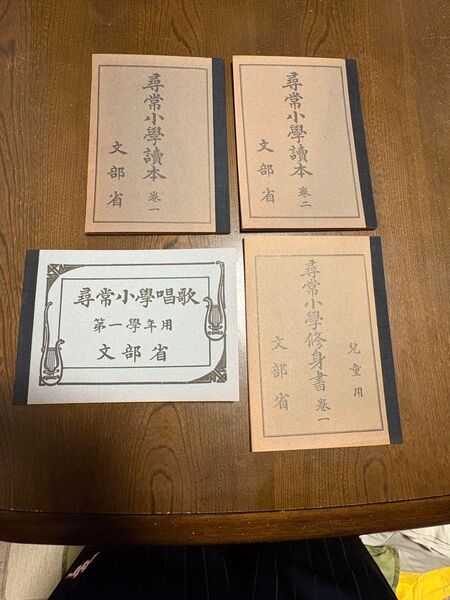 尋常小學讀本 卷一
文部省
尋常小學讀本 卷二
文部省
尋常小學唱歌
第一學年用
文部省
兒童用
尋常小學修身書 卷一
文部省